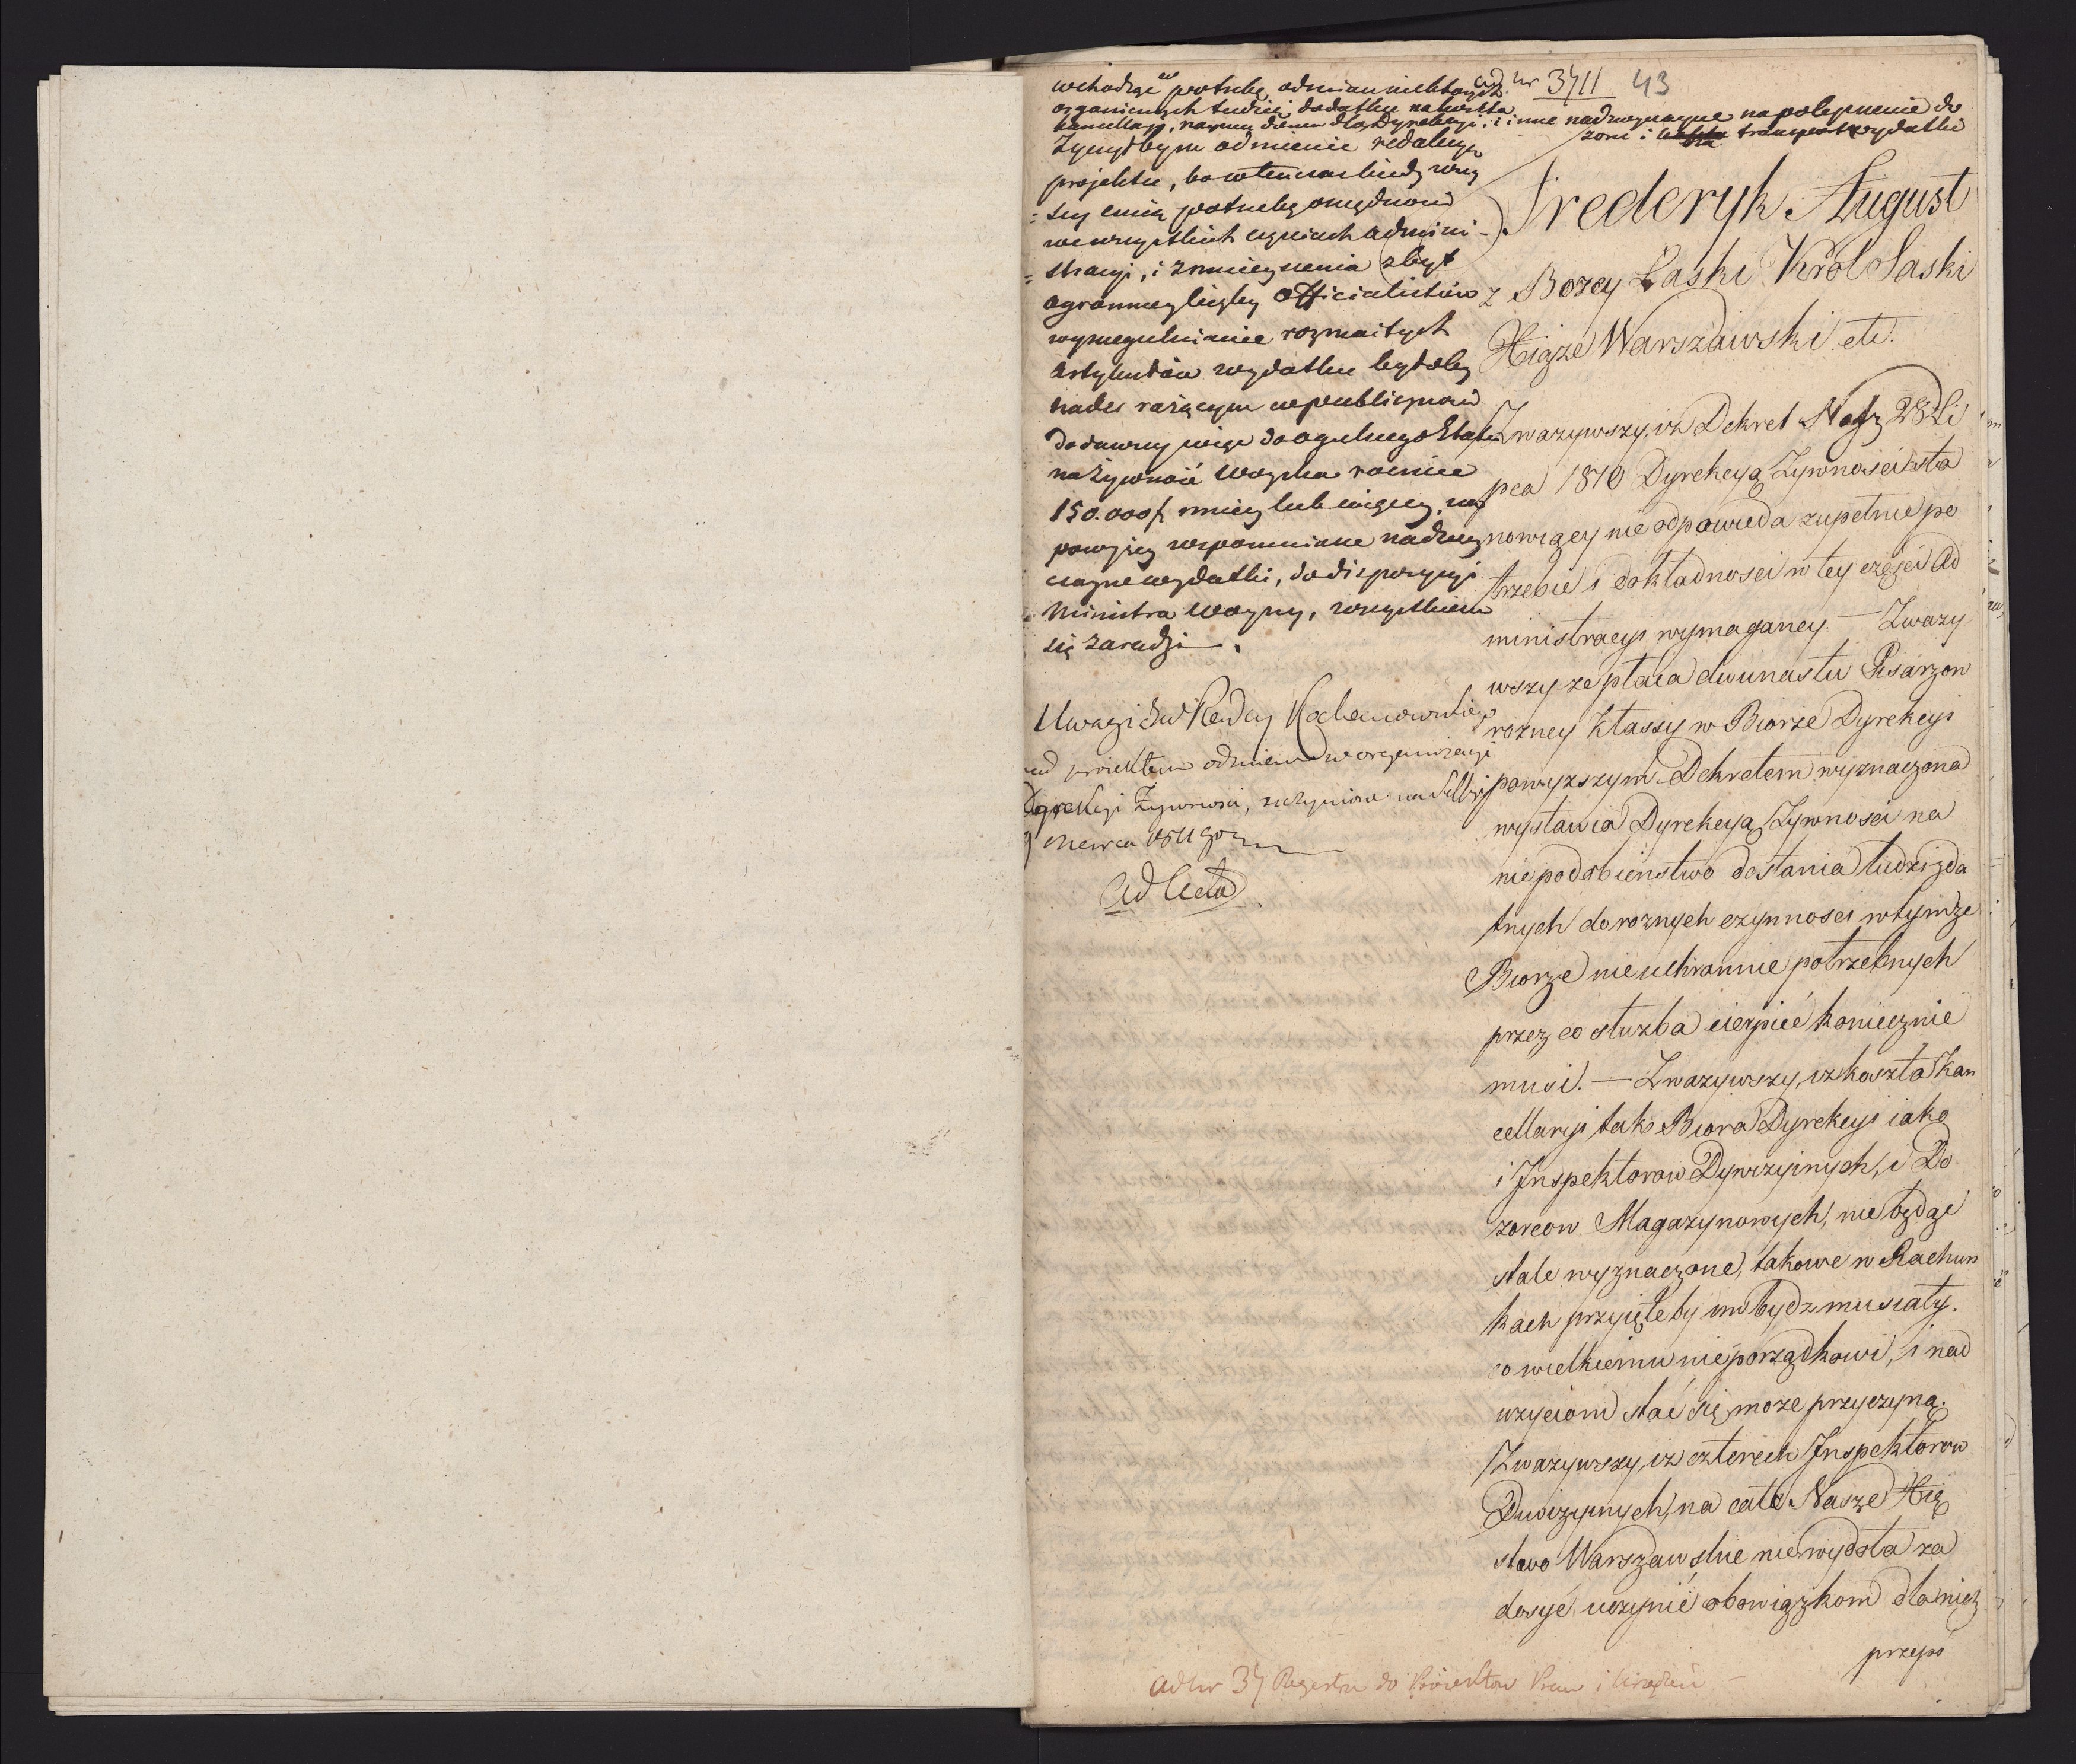 ad Nr 3711 43
wchodząc w potrzebę odmian niektórych
organicznych tudzież dodatku na koszta
kancellaryi, na pensye dienne dla Dyrekcyi, i inne nadzwyczayne na polepszenie do
zoru i transportu wydatki
życzyłbym odmienić redakcyą
projektu, bo wtenczas kiedy wszy
=scy czują potrzebę oszczędności
we wszystkich częściach admini-
=stracyi, i zmnieyszenia zbyt
ogromney liczby officialistów
wyszczegulnianie rozmaitych
artykułów wydatku byłoby
nader rażącym w publiczności
dodawszy więc do ogulnego Etatu
na żywność Woyska rocznie
150.000 f. mniey lub więcey, na
powyżey wspomniane nadzwy
czayne wydatki, do dispozycyi
Ministra Woyny, wszystkiemu
się zaradzi.
Uwagi JW Radcy Kochanowskiego
nad proiektem odmian w organizacyi
Dyrekcyi Żywności, uczynione na Sessyi
9 Marca 1811 go
ad Acta
Frederyk August
z Bozey Łaski Król Saski
Xiąze Warszawski etc.
Zwazywszy, iz Dekret Nasz 28 Li
pca 1810 Dyrekcyą Zywnosci sta
nowiący nie odpowieda zupełnie po
trzebie i dokładnosci w tey części Ad
ministracyi wymaganey. — Zwazy
wszy ze płaca dwunastu Pisarzow
rozney klassy w Biorze Dyrekcyi
powyzszym Dekretem wyznaczona
wystawia Dyrekcyą Zywnosci na
niepodobienstwo dostania ludzi zda
tnych do roznych czynnosci w tymze
Biorze nieuchronnie potrzebnych
przez co słuzba cierpieć koniecznie
musi. — Zwazywszy, iz koszta Kan
cellaryi tak Biora Dyrekcyi iako
i Inspektorow Dywizyinych, i Do
zorcow Magazynowych, nie będąc
stale wyznaczone, takowe w Rachun
kach przyięte by im bydz musiały.
co wielkiemu nieporządkowi, i nad
uzyciom stać się moze przyczyną.
Zwazywszy, iz czterech Inspektorow
Dwizyinych, na całe Nasze Xię
stwo Warszawskie nie wydoła za
dosyć uczynić obowiązkom dla nich
przepi
ad Nr 37 Regestru do Proiektow Praw i Urządzeń